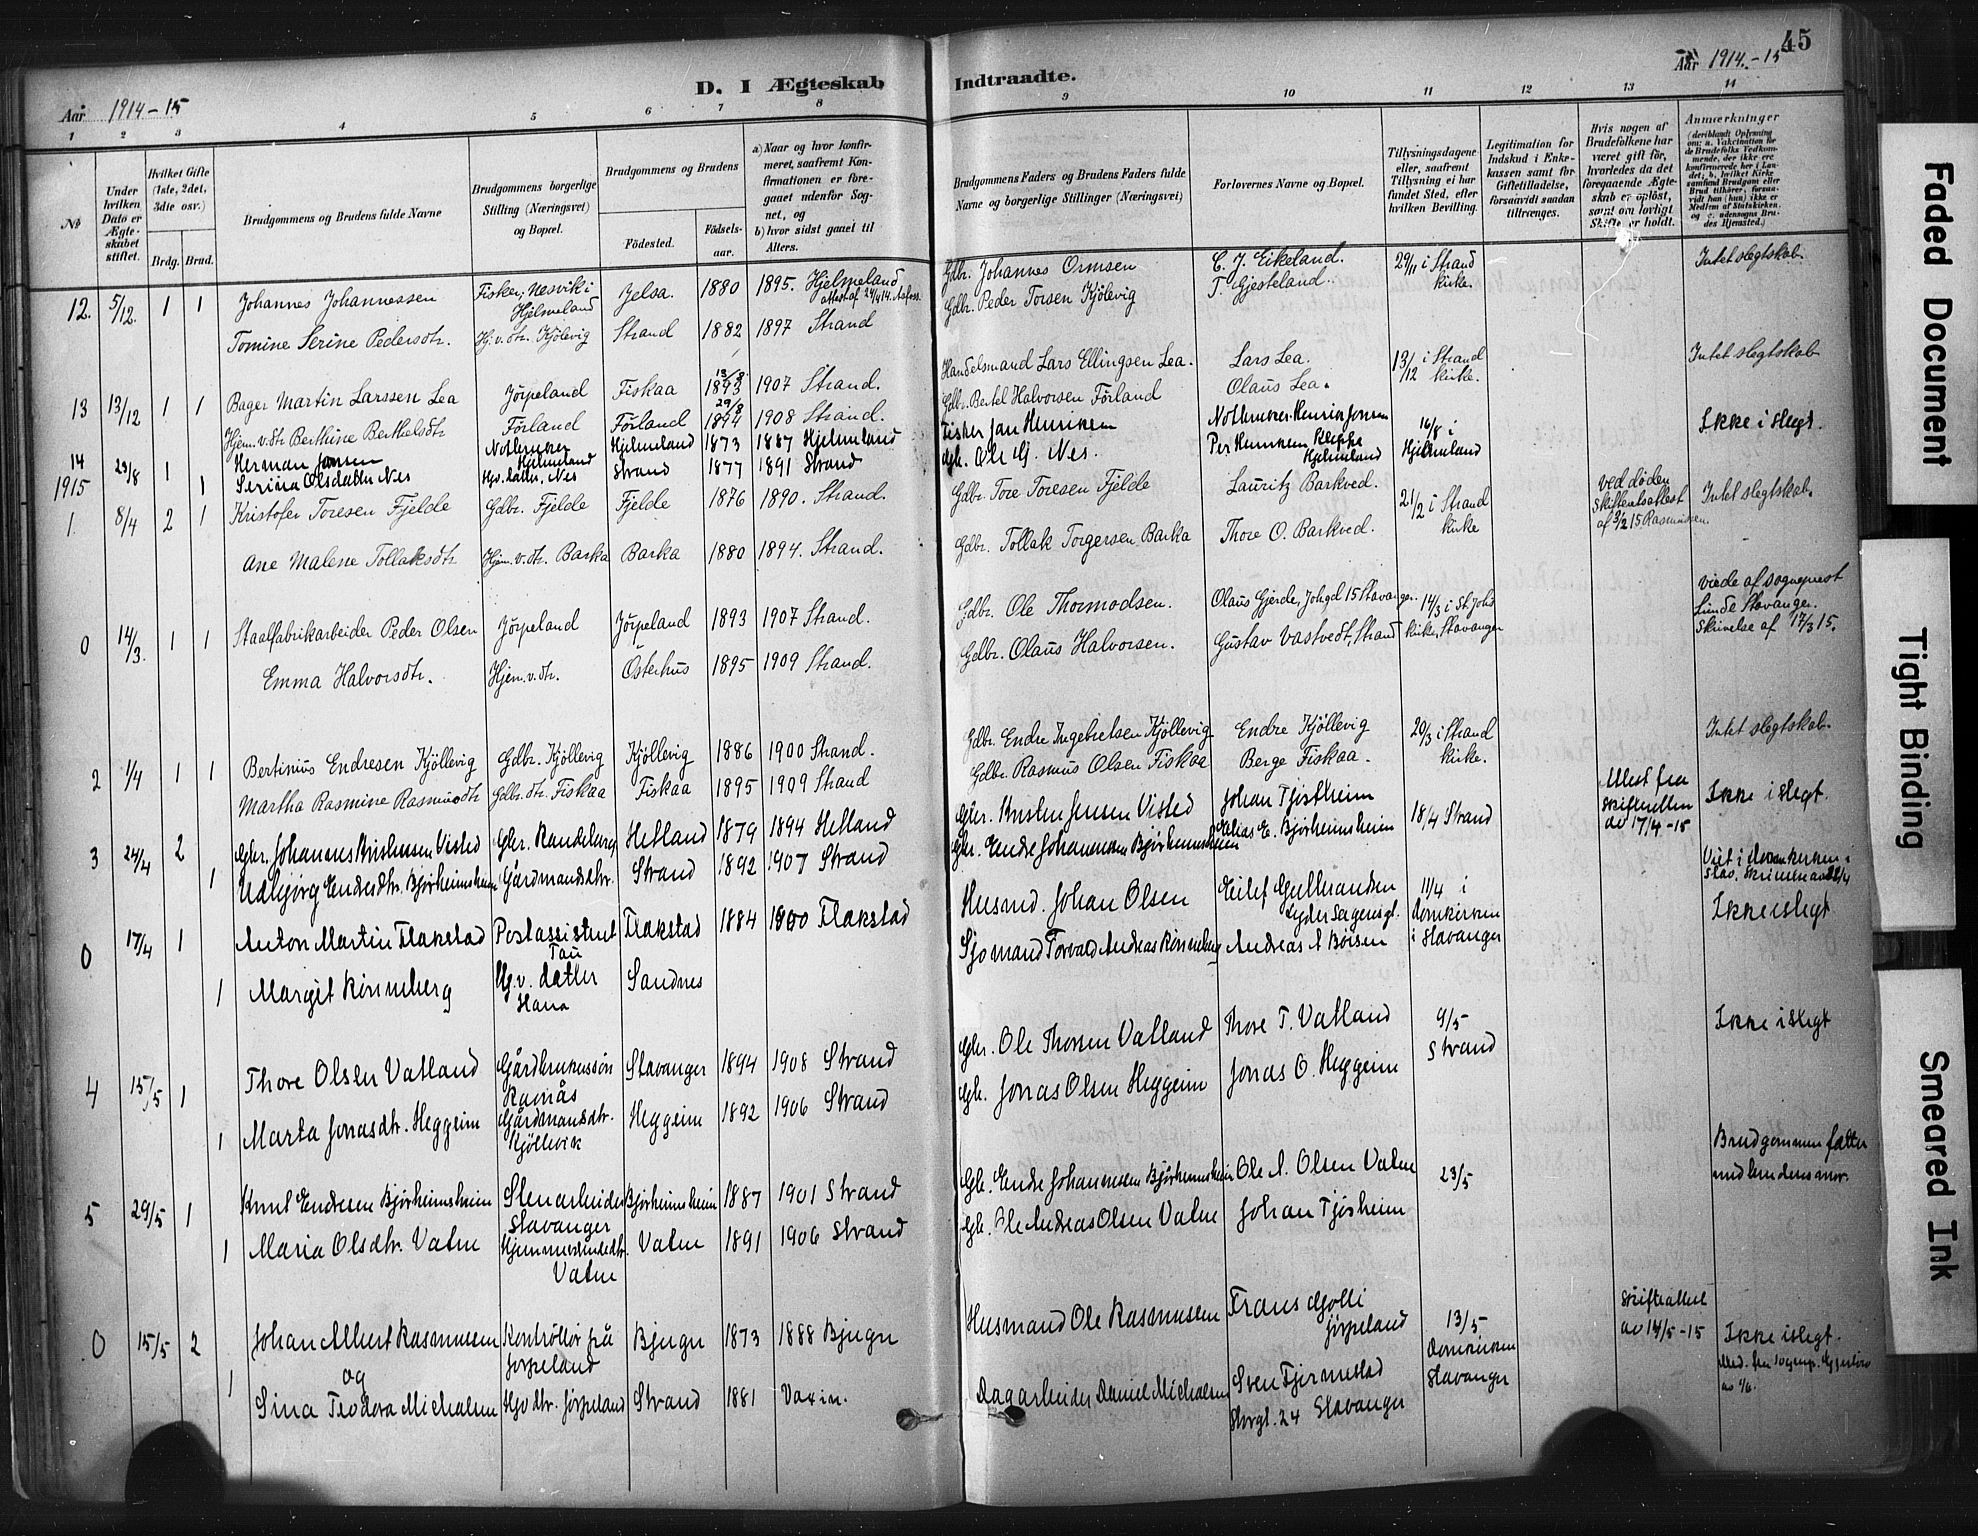 Aar 1914-15
D. I Ægteskab
Indtraadte.
Aar 1914.-15
45
1 2 3 4 5 6 7 8 9 10 11 12 13 14
№
Under hvilken Dato er Ægteskabet stiftet.
Hvilket Gifte (1ste, 2det, 3die osv.)
Brdg. Brud.
Brudgommens og Brudens fulde Navne
Brudgommens borgerlige Stilling (Næringsvei) og Bopæl.
Brudgommens og Brudens
Födested.
Födselsaar.
a) Naar og hvor konfirmeret, saafremt Konfirmationen er foregaaet udenfor Sognet, og
b) hvor sidst gaaet til Alters.
Brudgommens Faders og Brudens Faders fulde Navne og borgerlige Stillinger (Næringsvei)
Forlovernes Navne og Bopæl.
Tillysningsdagene eller, saafremt Tillysning ei har fundet Sted, efter hvilken Bevilling.
Legitimation for Indskud i Enkekassen samt for Giftetilladelse, forsaavidt saadan tiltrænges.
Hvis nogen af Brudefolkene har været gift før, hvorledes da det foregaaende Ægteskab er oplöst, samt om lovligt Skifte er holdt.
Anmærkninger
12. 5/12. 1 1 Johannes Johannessen Fisker, Nesvik i Hjelmeland Jelsa. 1880 1895. Hjelmeland Gdbr. Johannes Ormsen C. J. Eikeland. 29/11 i Strand kirke. Intet slegtskab.
Tomine Serine Pedersdtr. Hj. v. dtr. Kjölevig Strand 1882 1897 Strand Gdbr. Peder Torsen Kjölevig T. Gjesteland.
13 13/12 1 1 Bager Martin Larssen Lea Jørpeland Fiskaa 13/8 1893 1907 Strand. Handelsmand Lars Ellingsen Lea. Lars Lea. 13/12 i Strand kirke. Intet slegtskab
Hjem. v. dtr Berthine Berthelsdtr Förland Förland 29/8 1894 1908 Strand. Gdbr. Bertel Halvorsen Förland Olaus Lea.
14 29/8 1 Herman Jansen Notbruker Hjelmeland Hjelmeland 1873 1887 Hjelmeland Fisker Jan Henriksen Notbruker Henrik Jonsen 16/8 i Hjelmeland Ikke i slegt.
1915 1 Serina Olsdatter Nes Hjv. datter, Nes Strand 1877 1891 Strand Gbr. Ole G. Nes. Per Henriksen Kleppe Hjelmeland
1. 8/4 2 1 Kristofer Toresen Fjelde Gdbr. Fjelde Fjelde 1876 1890. Strand. Gdbr. Tore Toresen Fjelde Lauritz Barkved. 21/2 i Strand kirke ved döden Skifteretsattest af 9/2 15 Rasmussen. Intet slegtskab.
Ane Malene Tollaksdtr Hjem. v. dtr. Barka Barka 1880 1894. Strand. Gdbr. Tollak Torgersen Barka Thore O. Barkved.
0 14/3. 1 1 Staalfabrikarbeider Peder Olsen Jörpeland Jörpeland 1893 1907 Strand. Gdbr. Ole Thormodsen. Olaus Gjerde, Johgd 15 Stavanger. 14/3 i St. Johs kirke, Stavanger viede af sogneprest Lunde Stavanger. Skrivelse af 17/3 15.
Emma Halvorsdtr. Hjem. v. dtr. Österhus 1895 1909 Strand. Gdbr. Olaus Halvorsen. Gustav Vastvedt, Strand
2 1/4 1 1 Bertinius Endresen Kjöllevig Gdbr. Kjöllevig Kjöllevig 1886 1900 Strand. Gdbr. Endre Ingebretsen Kjöllevig Endre Kjöllevig 20/3 i Strand kirke. Intet slegtskab.
Martha Rasmine Rasmusdtr Gdbr. dtr. Fiskaa Fiskaa 1895 1909 Strand Gdbr. Rasmus Olsen Fiskaa Berge Fiskaa.
3 24/4 2 Gbr. Johannes Kristensen Visted Gbr. Randeberg Hetland 1879 1894 Hetland Gbr. Kristen Jensen Visted Johan Tjøstheim 18/4 Strand Attest fra skifteretten av 17/4-15 Ikke i slegt.
1 Udbjørg Endresdtr. Bjørheimsheim Gårdmandsdtr. Strand 1892 1907 Strand Gbr. Endre Johannessen Bjørheimsheim Elias E. Bjørheimsheim
0 17/4 1 Anton Martin Flakstad Postassistent Tau Flakstad 1884 1900 Flakstad Husmd. Johan Olsen Eilef Gulbrandsen Lyder Sagensgt. 11/4 i Domkirken i Stavanger Viet i domkirken i Stav. Ikke i slegt
1 Margit Rønneberg Hj. v. datter Hana Sandnes Sjømand Torvald Andreas Rønneberg Andreas A Børsen
4 15/5 1 Thore Olsen Vatland Gårdbrukerssøn Ramås Stavanger 1894 1908 Strand Gbr. Ole Thorsen Vatland Thore T. Vatland 9/5 Strand Ikke i slegt
1 Marta Jonasdtr. Heggeim Gårdmansdtr. Kjöllevik Heggeim 1892 1906 Strand Gbr. Jonas Olsen Heggeim Jonas O. Heggeim
5 29/5 1 Knut Endresen Bjørheimsheim Stenarbeider Stavanger Bjørheimsheim 1887 1901 Strand Gbr. Endre Johannessen Bjørheimsheim Ole A. Olsen Vatne 23/5 Brudgommen fætter med brudens mor.
1 Maria Olsdtr. Vatne Hjemmeværendedtr. Vatne Vatne 1891 1906 Strand Gbr. Ole Andreas Olsen Vatne Johan Tjøsheim
0 15/5 2 Johan Albert Rasmussen Kontrollør på Jørpeland Bjugn 1873 1888 Bjugn Husmand Ole Rasmussen Frans Jørpeland 13/5 Domkirken Stavanger Skifteattest av 14/5-15 Ikke i slegt.
og
1 Sina Teodora Michalsen Hjv dtr. Jørpeland Strand 1881 Vaxin. Dagarbeider Daniel Michalsen Sven Fjermestad Storgt. 24 Stavanger
Faded Document
Tight Binding
Smeared Ink